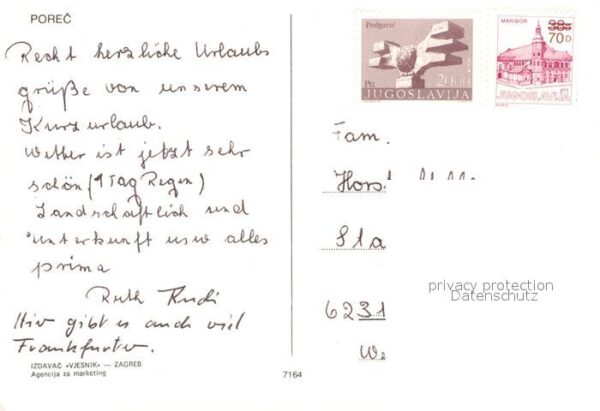 POREČ
Recht herzliche Urlaubs
grüße von unserem
Kurzurlaub.
Wetter ist jetzt sehr
schön (1 Tag Regen)
Landschaftlich und
unterkunft usw alles
prima
Ruth Rudi
Hier gibt es auch viel
Frankfurter.
IZDAVAČ »VJESNIK« — ZAGREB
Agencija za marketing
7164
Podgarić
Ptt 20.00
JUGOSLAVIJA
MARIBOR
70 D
JUGOSLAVIJA
Fam.
Horst
Sta
privacy protection
Datenschutz
6231